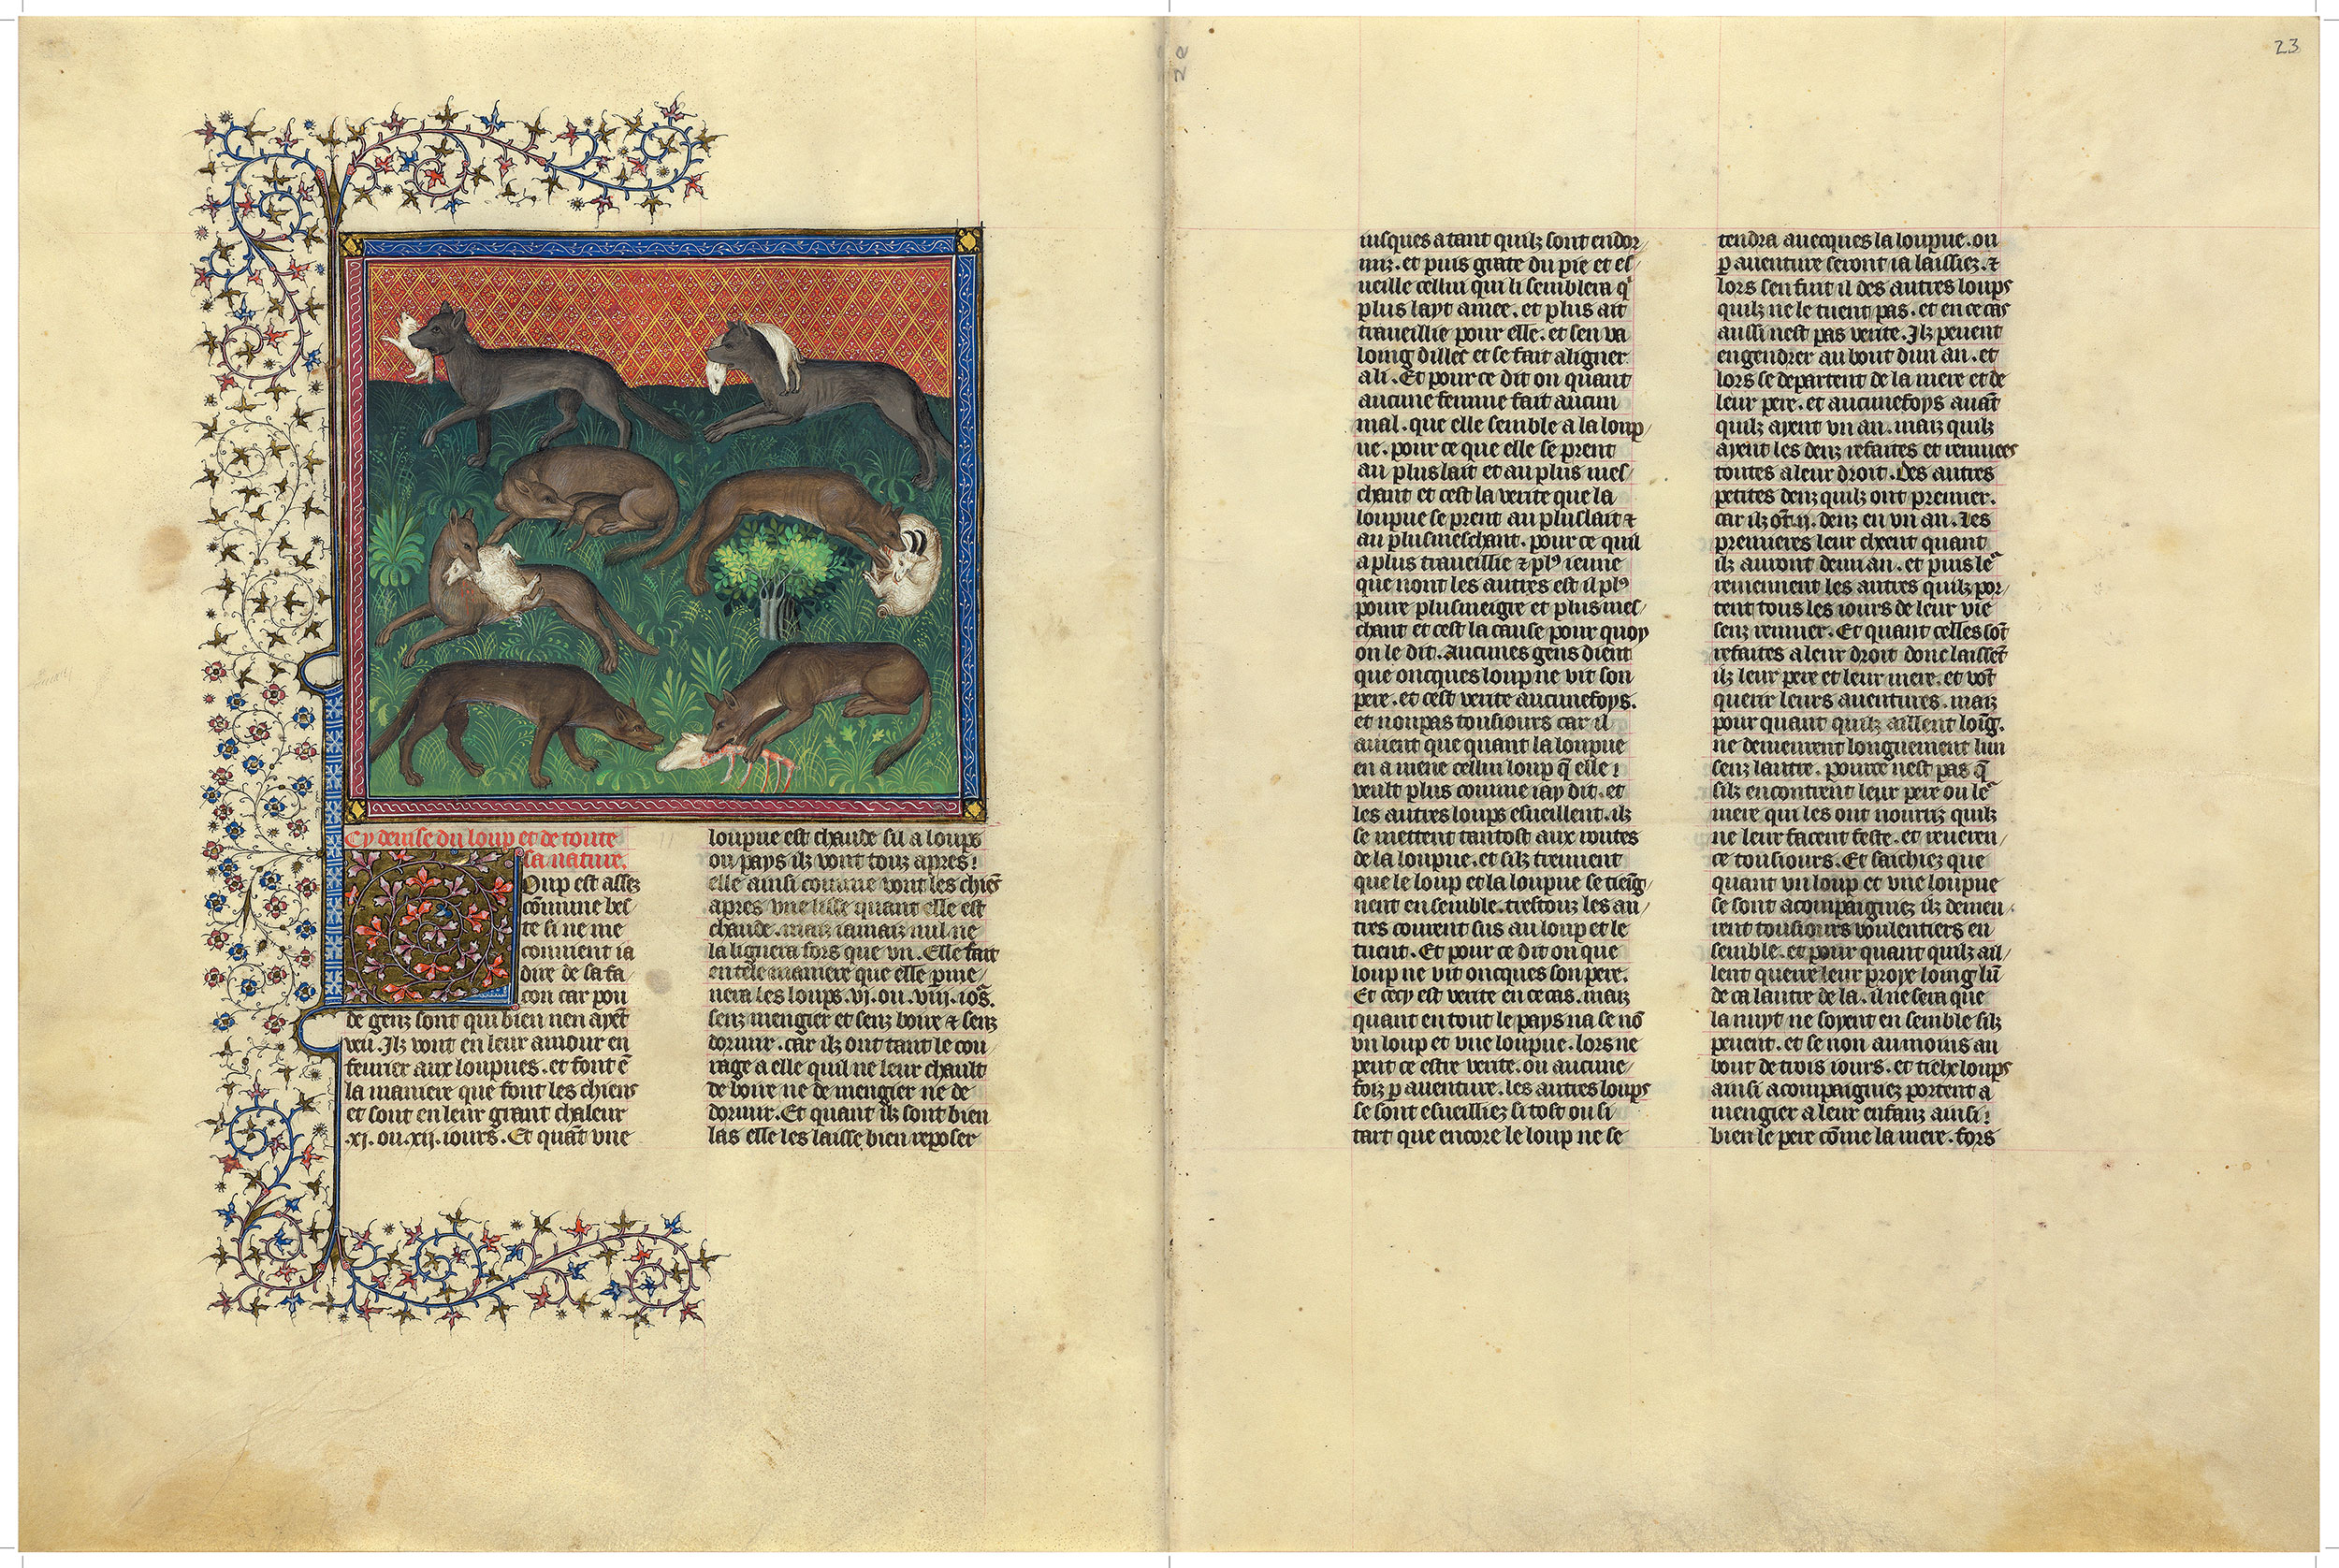 Cy deuise du loup et de toute
sa nature.
Oup est assez
cōmune bes
te si ne me
conuient ia
dire de sa fa
con car pou
de genz sont qui bien nen ayēt
veu. Ilz vont en leur amour en
feurier aux loupues. et font ē
la maniere que font les chiens
et sont en leur grant chaleur
.xj. ou .xij. iours. Et quāt vne
loupue est chaude sil a loups
ou pays ilz vont touz apres
elle ainsi comme vont les chiēs
apres vne lisse quant elle est
chaude. maiz iamaiz nul ne
la lignera fors que vn. Elle fait
en tele maniere que elle pme/
nera les loups .vj. ou .viij. iōs.
senz mengier et senz boire & senz
dormir. car ilz ont tant le cou/
rage a elle quil ne leur chault
de boire ne de mengier ne de
dormir. Et quant ilz sont bien
las elle les laisse bien reposer
iusques a tant quilz sont endor/
miz. et puis grate du pie et es/
ueille cellui qui li semblera q̄
plus layt amee. et plus ait
traueillie pour elle. et sen va
loing dillec et se fait aligner
ali. Et pour ce dit on quant
aucune femme fait aucun
mal. que elle semble a la loup/
ue. pour ce que elle se prent
au plus lait et au plus mes/
chant et cest la verite que la
loupue se prent au plus lait &
au plus meschant. pour ce quil
a plus traueillie & plꝰ ieune
que nont les autres est il plꝰ
poure plus meigre et plus mes/
chant et cest la cause pour quoy
on le dit. Aucunes gens dient
que oncques loup ne vit son
pere. et cest verite aucunefoys.
et non pas tousiours car il
auient que quant la loupue
en a mene cellui loup q̄ elle
veult plus comme iay dit. et
les autres loups esueillent. ilz
se mettent tantost aux routes
de la loupue. et silz treuuent
que le loup et la loupue se tieng/
nent ensemble. trestouz les au/
tres courent sus au loup et le
tuent. Et pour ce dit on que
loup ne vit oncques son pere.
Et cecy est verite en ce cas. maiz
quant en tout le pays na se nō
vn loup et vne loupue. lors ne
peut ce estre verite. ou aucune/
foiz p auenture. les autres loups
se sont esueilliez si tost ou si
tart que encore le loup ne se
tendra auecques la loupue. ou
p auenture seront ia laissiez. &
lors sen fuit il des autres loups
quilz ne le tuent pas. et en ce cas
aussi nest pas verite. Ilz peuent
engendrer au bout dun an. et
lors se departent de la mere et de
leur pere. et aucunefoys auāt
quilz ayent vn an. maiz quilz
ayent les denz refaites et venues
toutes a leur droit. Des autres
petites denz quilz ont premier.
car ilz ōt .ij. denz en vn an. Les
premieres leur cheent quant
ilz auront demi an. et puis le
reuiennent les autres quilz por/
tent tous les iours de leur vie
senz remuer. Et quant celles sōt
refaites a leur droit donc laissēt
ilz leur pere et leur mere. et vōt
querir leurs auentures. maiz
pour quant quilz aillent loīg.
ne demeurent longuement lun
senz lautre. pource nest pas q̄
silz encontrent leur pere ou le
mere qui les ont nourriz quilz
ne leur facent feste. et reueren/
ce tousiours. Et saichiez que
quant vn loup et vne loupue
se sont acompaigniez ilz demeu/
rent tousiours voulentiers en
semble. et pour quant quilz ail/
lent querre leur proye loing lū
de ca lautre de la. il ne sera que
la nuyt ne soyent ensemble silz
peuent. et se non au moins au
bout de trois iours. et tielx loups
ainsi acompaigniez portent a
mengier a leur enfanz ainsi
bien le pere cōme la mere. fors
23